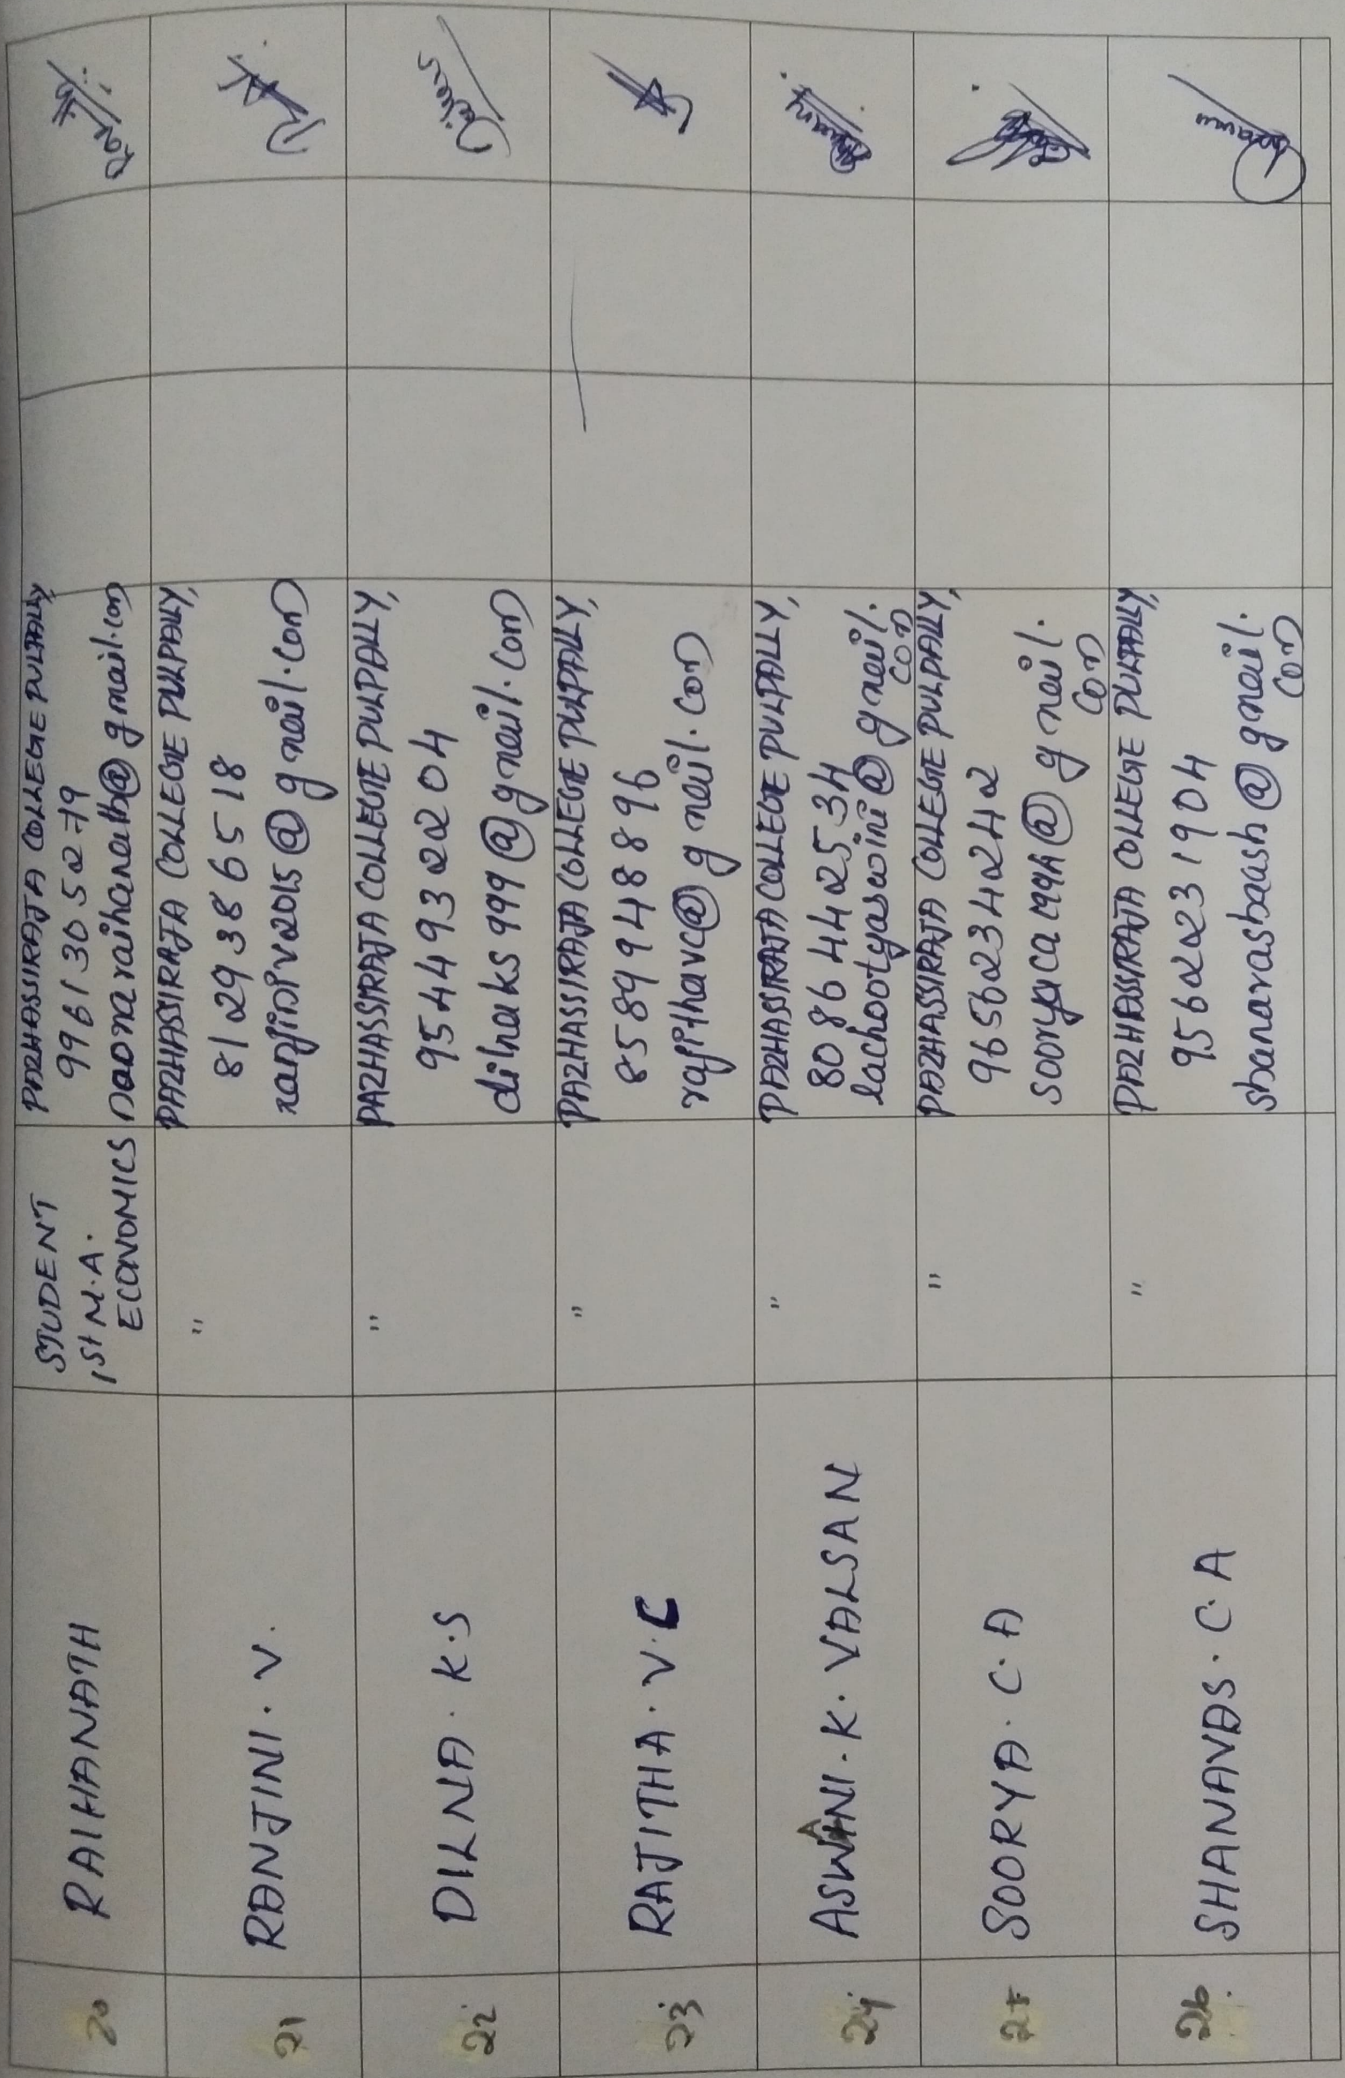 20
RAIHANATH
STUDENT
1st M.A.
ECONOMICS
PAZHASSIRAJA COLLEGE PULPALLY
9961305279
noonaraihanath@gmail.com
21
RANJINI. V.
"
PAZHASSIRAJA COLLEGE PULPALLY,
8129386518
ranjiniv2015@gmail.com
22
DILNA. K.S
"
PAZHASSIRAJA COLLEGE PULPALLY,
9544932204
dilnaks999@gmail.com
23
RAJITHA. V. C
"
PAZHASSIRAJA COLLEGE PULPALLY,
8589948896
rajithavc@gmail.com
24
ASWANI. K. VALSAN
"
PAZHASSIRAJA COLLEGE PULPALLY,
8086442534
lachootyaswini@gmail.
com
25
SOORYA. C. A
"
PAZHASSIRAJA COLLEGE PULPALLY,
9656234242
sooryaca1994@gmail.
com
26
SHANAVAS. C. A
"
PAZHASSIRAJA COLLEGE PULPALLY,
9562231904
shanavasbaush@gmail.
com